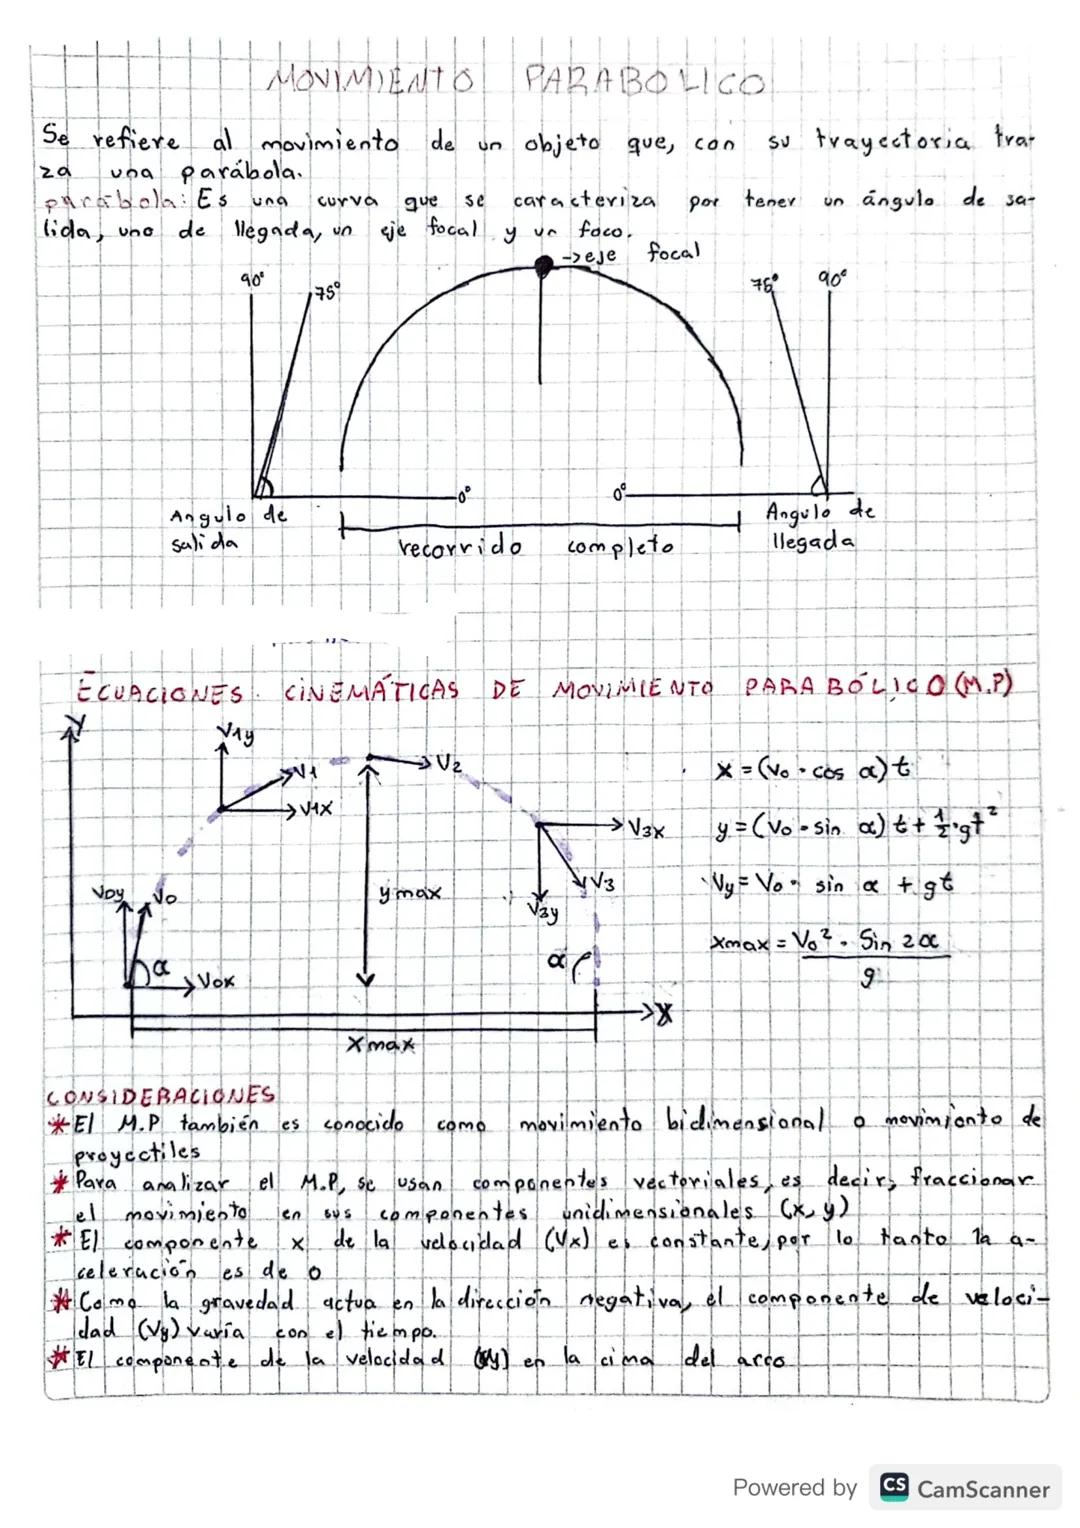 MOVIMIENTO PARABOLICO
Se refiere al movimiento de un objeto que, con su trayectoria tra-
za una parábola.
parábola: Es una curva que se caracteriza por tener un ángulo de sa-
lida, uno de llegada, un eje focal y un foco.
->eje focal
90° 75° 75° 90°
0° 0°
Angulo de salida
recorrido completo
Angulo de llegada
ECUACIONES CINEMÁTICAS DE MOVIMIENTO PARABÓLICO (M.P)
Y
V1y
V1
V1x
V2
V3x
V3
V3y
Voy
Vo
α
Vox
ymax
α
X
Xmax
x = (Vo · cos α) t
y = (Vo · sin α) t + 1/2 · gt²
Vy = Vo · sin α + gt
Xmax = Vo² · Sin 2α
g
CONSIDERACIONES
* El M.P también es conocido como movimiento bidimensional o movimiento de
proyectiles
* Para analizar el M.P, se usan componentes vectoriales, es decir, fraccionar
el movimiento en sus componentes unidimensionales (x, y)
* El componente x de la velocidad (Vx) es constante, por lo tanto la a-
celeración es de 0
* Como la gravedad actua en la dirección negativa, el componente de veloci-
dad (Vy) varía con el tiempo.
* El componente de la velocidad (y) en la cima del arco
Powered by CS CamScanner